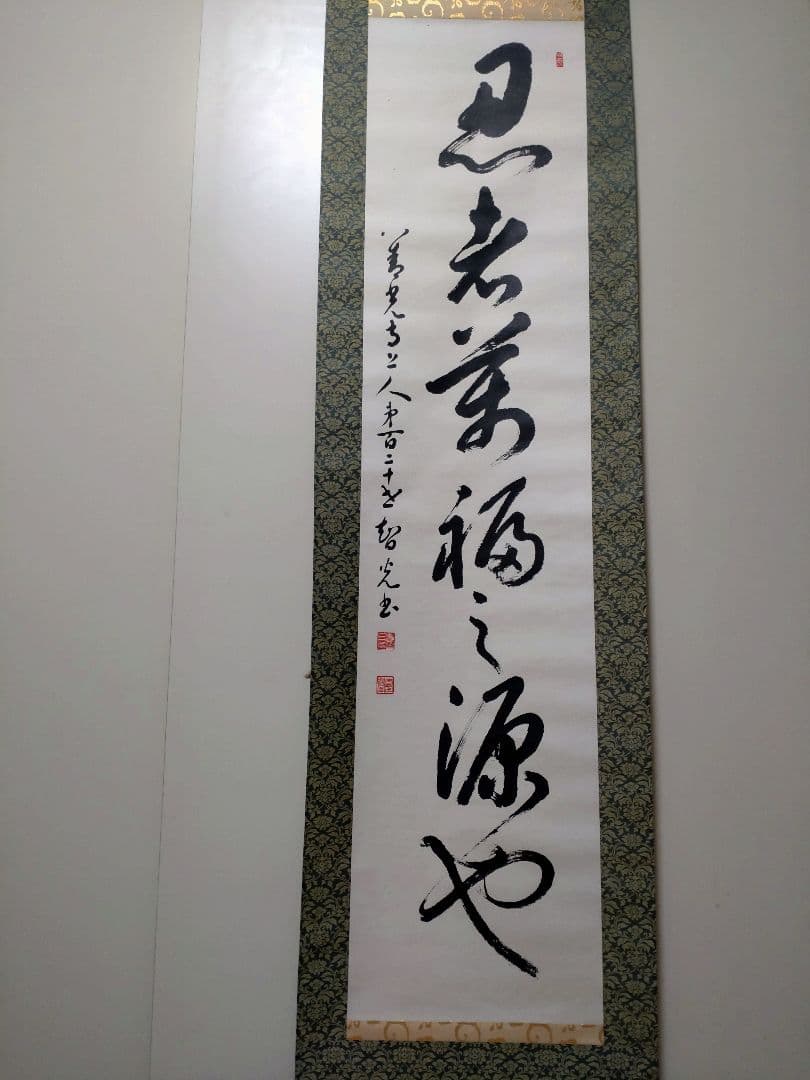 忍者萬福之源也
善光寺上人第百二十世智光書